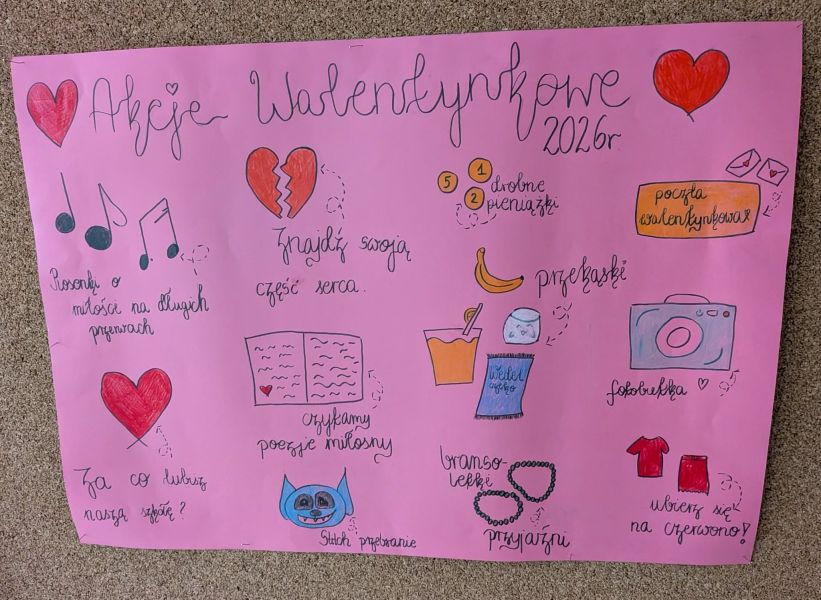 Akcje Walentynkowe
2026r.
Piosenki o
miłości na długich
przerwach
Znajdź swoją
część serca.
5 1 2
drobne
pieniążki
poczta
walentynkowa
przekąski
Wedel
fotobudka
czytamy
poezje miłosny
Za co lubisz
naszą szkołę?
Stitch przebranie
branso-
letki
przyjaźni
ubierz się
na czerwono!